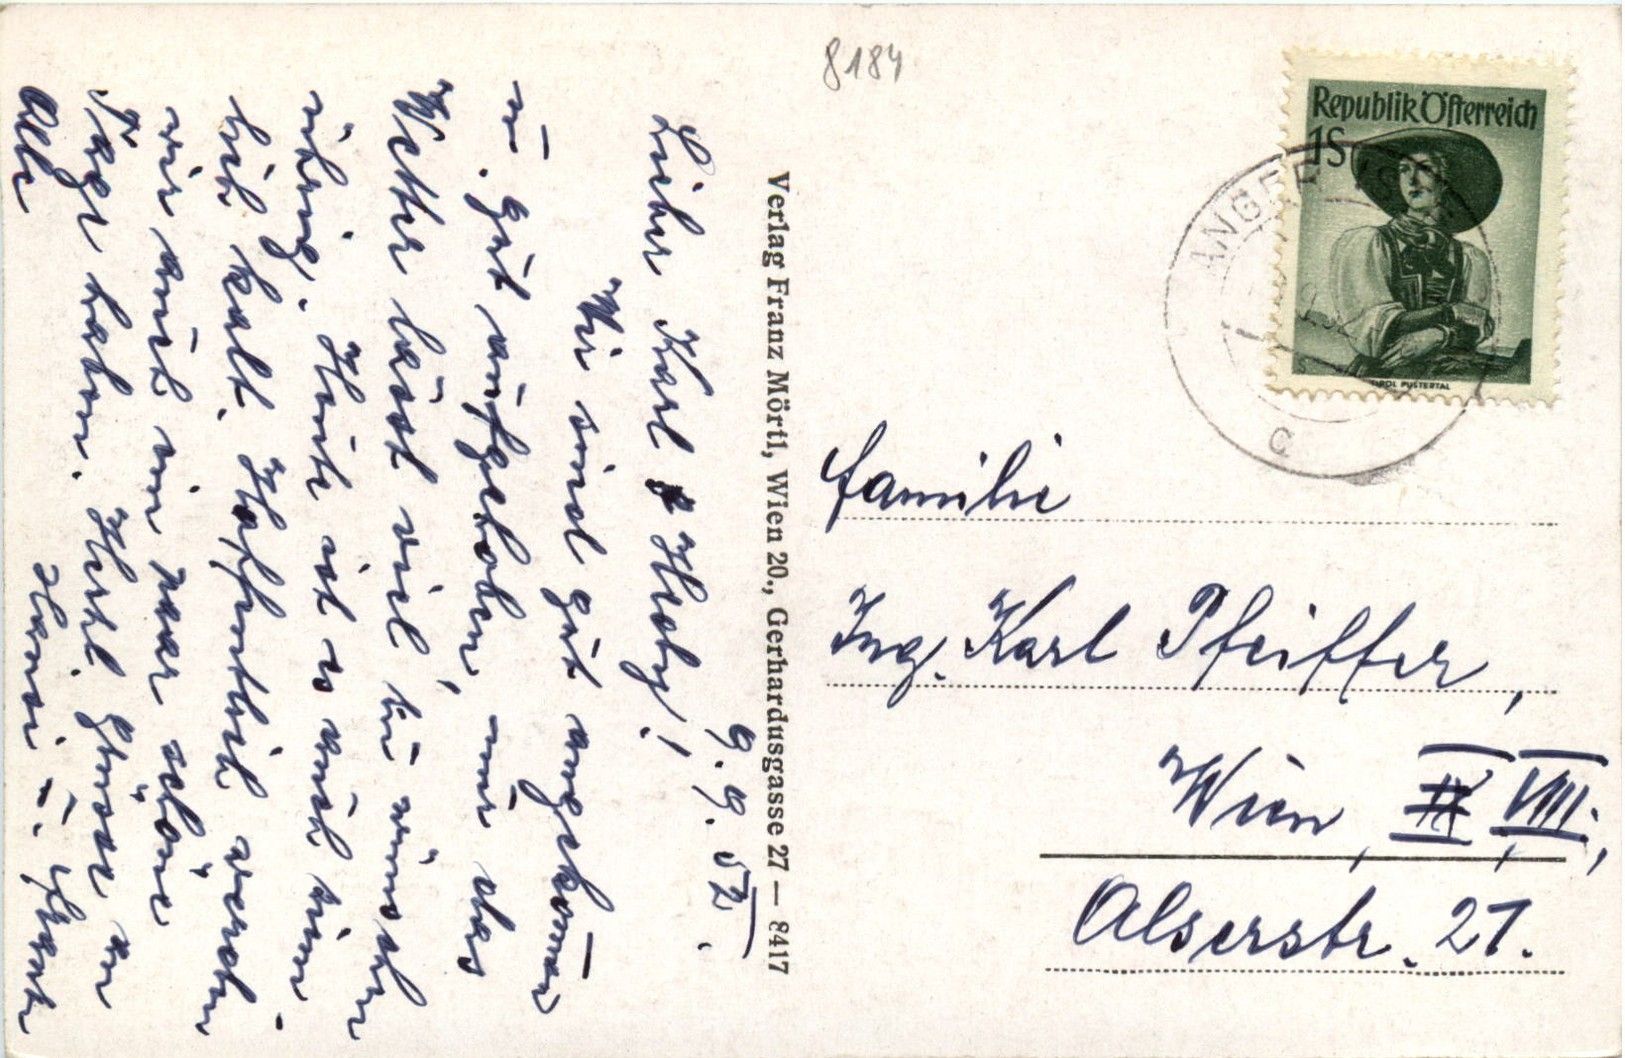 8184
Republik Österreich
1S
TIROL PUSTERTAL
ANGER
C
9. 9. 52.
Lieber Karl & Hedy!
Wir sind gut angekom̄en
u. gut aufgehoben, nur das
Wetter lässt viel zu wünschen
übrig. Heute ist es auch ziem-
lich kalt. Hoffentlich werden
wir auch ein paar schöne
Tage haben. Herzl. Grüsse an
Alle
Hansi u.
Verlag Franz Mörtl, Wien 20., Gerhardusgasse 27 — 8417
Familie
Ing. Karl Pfeiffer,
Wien, VIII.,
Alserstr. 27.